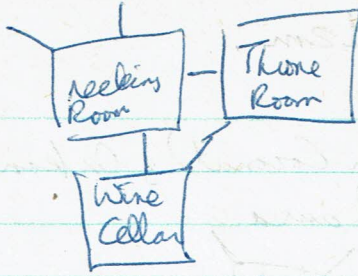 Meeting
Room
Throne
Room
Wine
Cellar